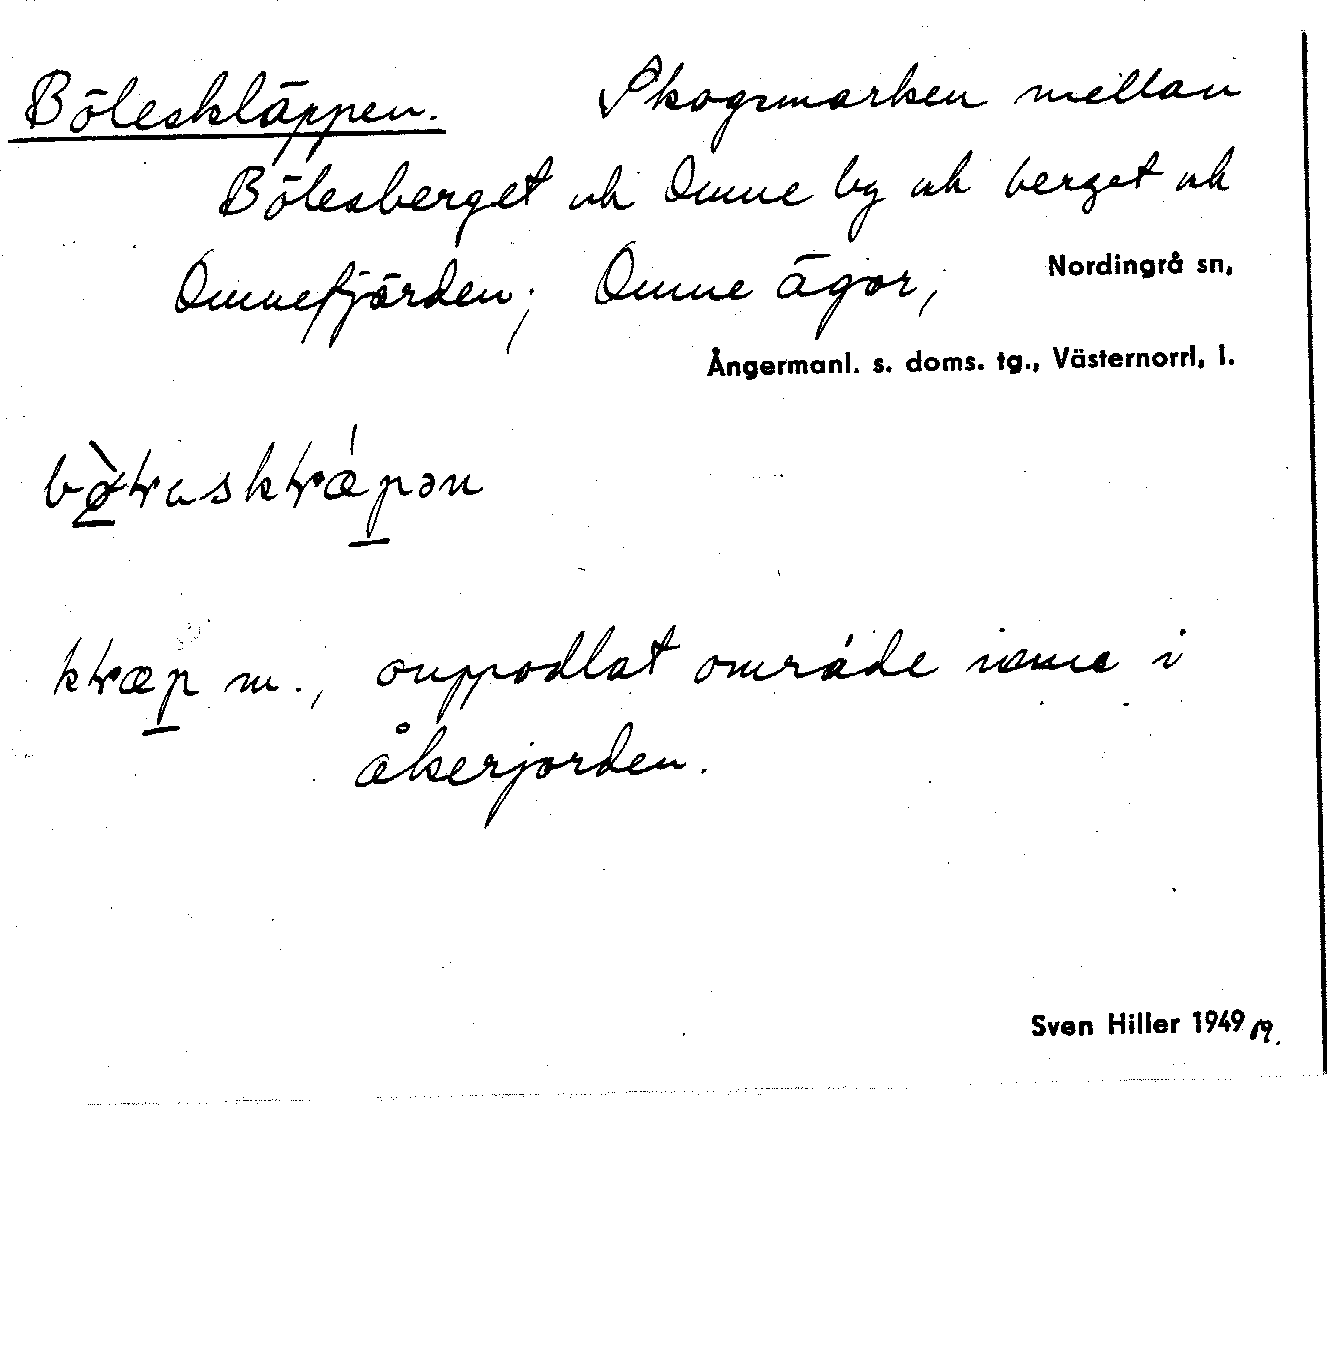 Böleskläppen. Skogsmarken mellan
Bölesberget och Omne by och berget och
Omnefjärden; Omne ägor, Nordingrå sn,
Ångermanl. s. doms. tg., Västernorrl. l.
m., ouppodlat område inne i
åkerjorden.
Sven Hiller 1949